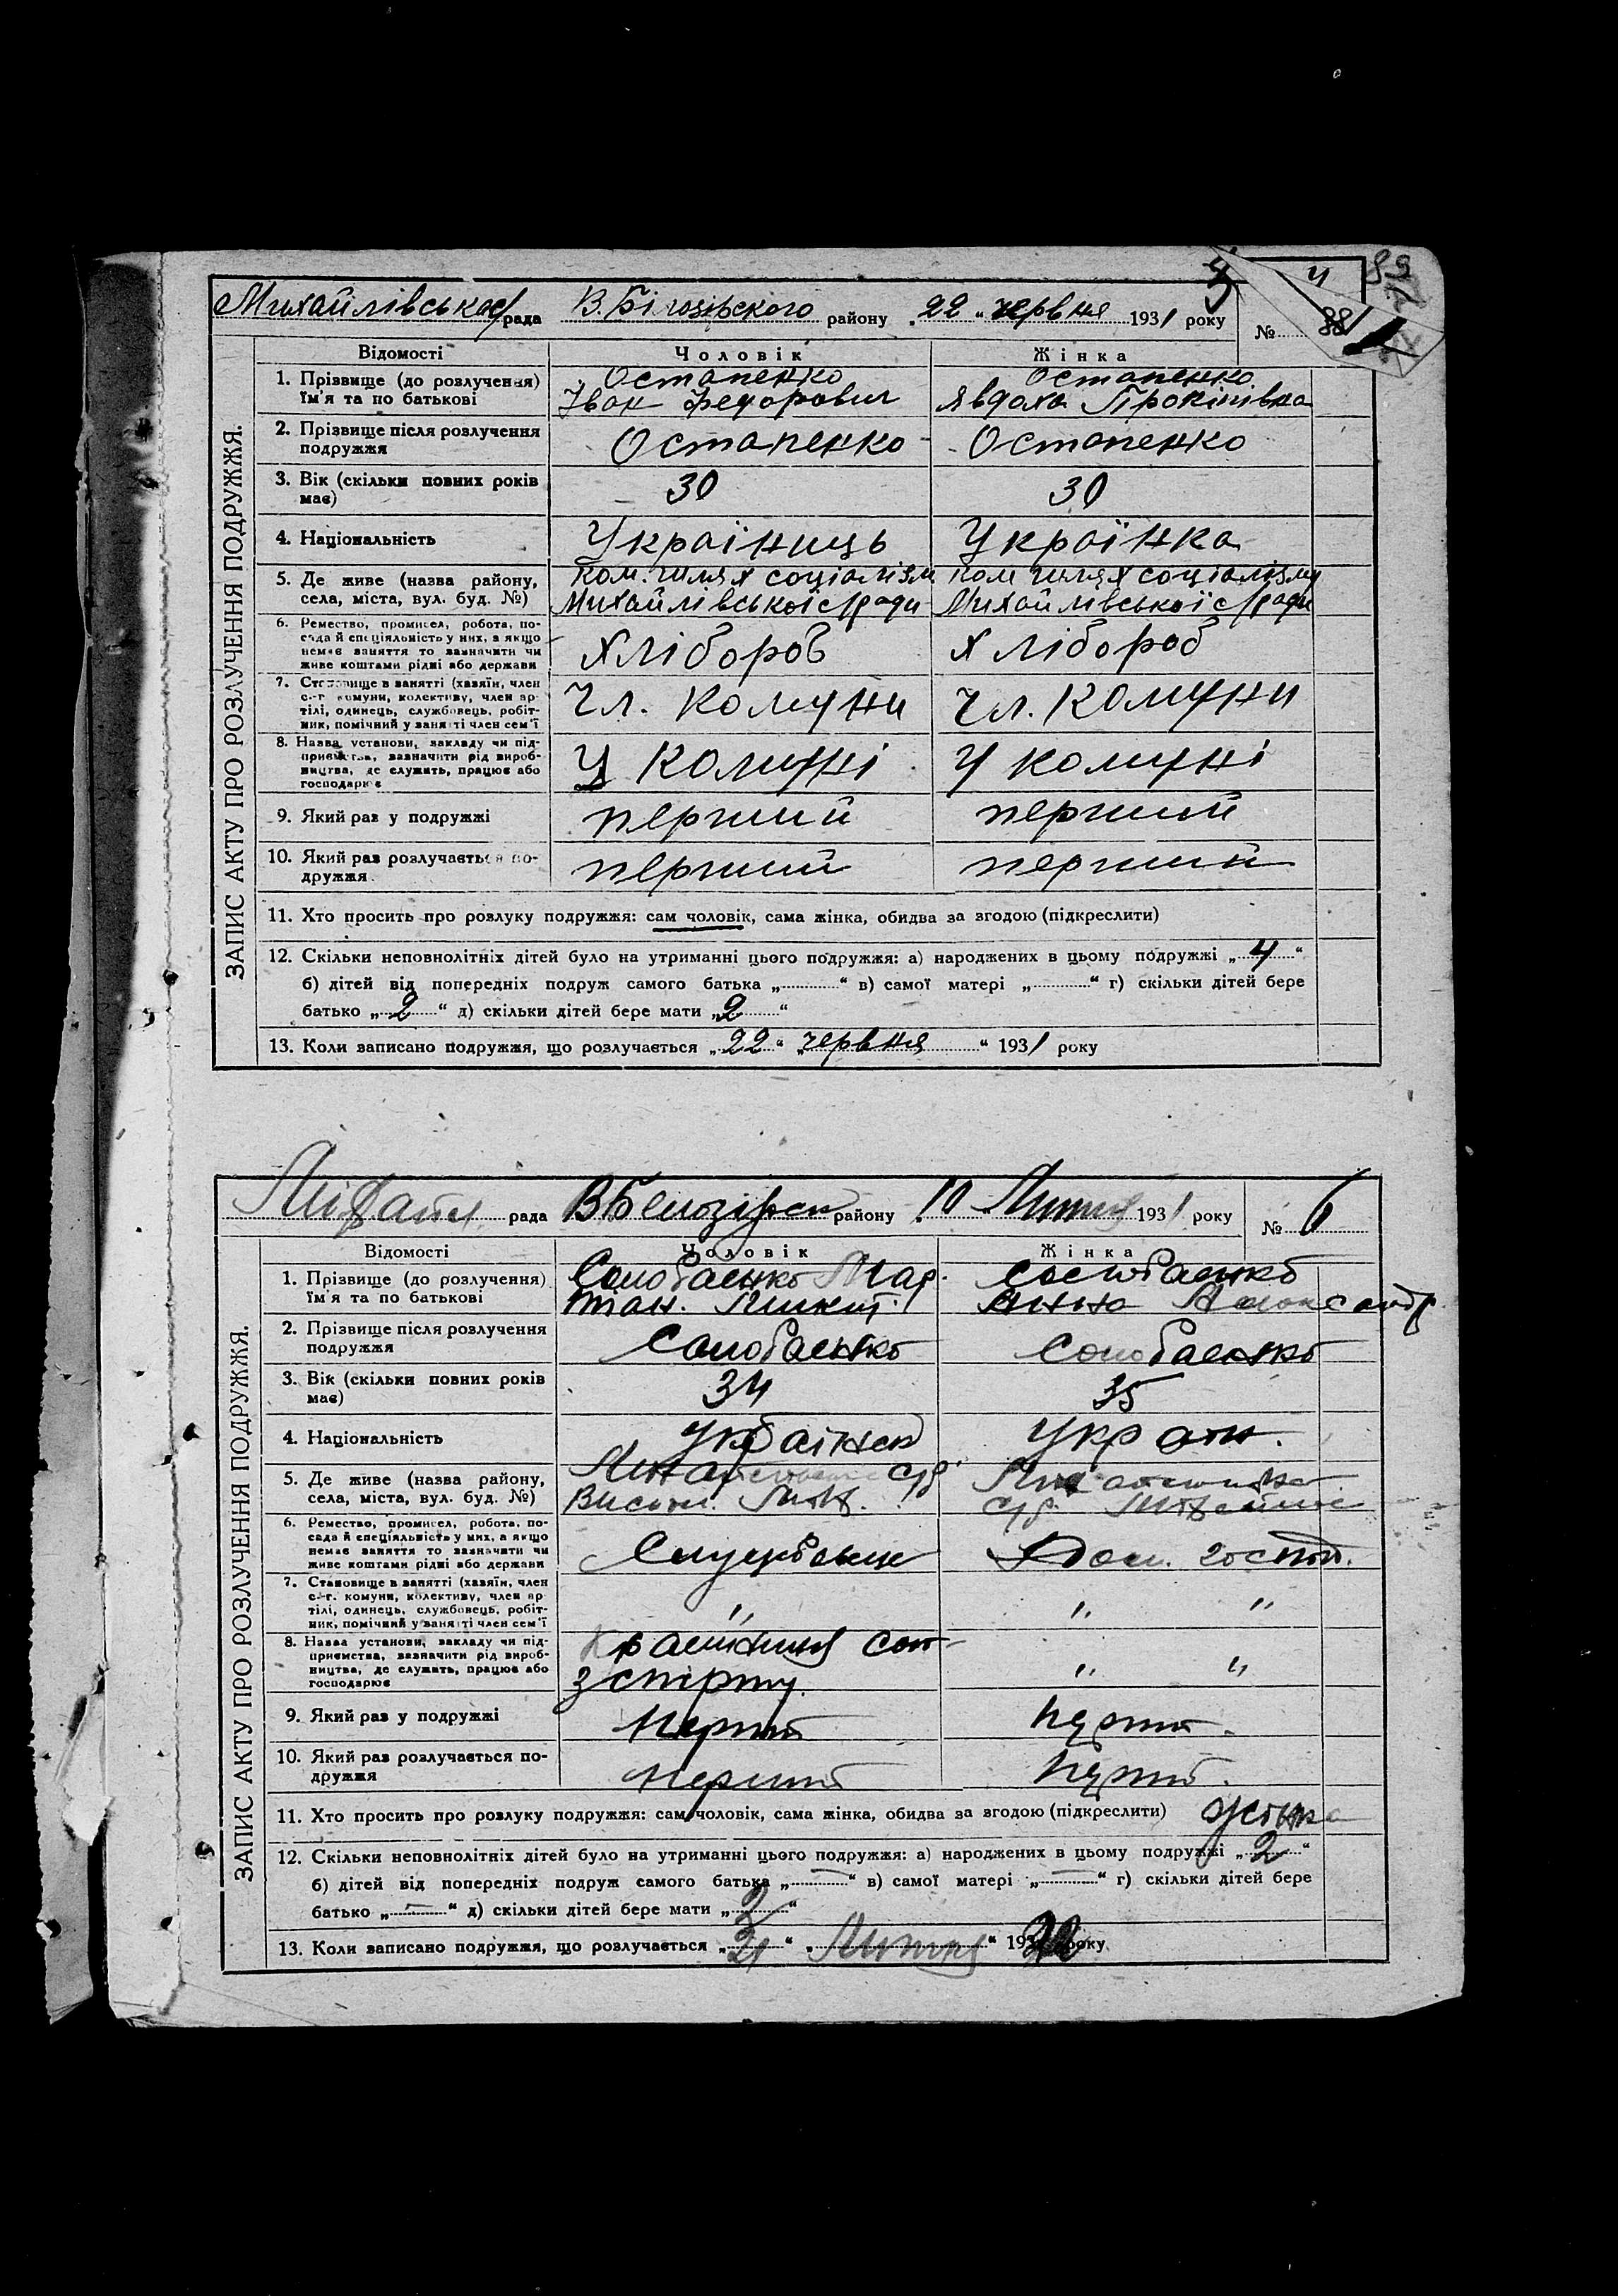 Михайлівська с/рада В. Білозірского району „22“ червня 1931 року №
ЗАПИС АКТУ ПРО РОЗЛУЧЕННЯ ПОДРУЖЖЯ.
Відомості Чоловік Жінка
1. Прізвище (до розлучення) Остапенко Остапенко
ім'я та по батькові Іван Федорович Явдоха Прокіпівна
2. Прізвище після розлучення
подружжя Остапенко Остапенко
3. Вік (скільки повних років
має) 30 30
4. Національність Україниць Українка
5. Де живе (назва району, Ком. шлях соціалізм Ком шлях соціалізму
села, міста, вул. буд. №) Михайлівської с/ради Михайлівської с/ради
6. Ремество, промисел, робота, по-
сада й спеціяльність у них, а якщо
немає заняття то зазначити чи
живе коштами рідні або держави Хлібороб Хлібороб
7. Становище в занятті (хазяїн, член
с.-г. комуни, колективу, член ар-
тілі, одинець, службовець, робіт-
ник, помічний у занятті член сем'ї Чл. Комуни Чл. Комуни
8. Назва установи, закладу чи під-
приємства, зазначити рід вироб-
ництва, де служить, працює або
господарює У Комуні У комуні
9. Який раз у подружжі перший перший
10. Який раз розлучається по-
дружжя перший перший
11. Хто просить про розлуку подружжя: сам чоловік, сама жінка, обидва за згодою (підкреслити)
12. Скільки неповнолітніх дітей було на утриманні цього подружжя: а) народжених в цьому подружжі „4“
б) дітей від попередніх подруж самого батька „ “ в) самої матері „ “ г) скільки дітей бере
батько „2“ д) скільки дітей бере мати „2“
13. Коли записано подружжя, що розлучається „22“ „червня“ 1931 року
рада району 10 1931 року № 6
ЗАПИС АКТУ ПРО РОЗЛУЧЕННЯ ПОДРУЖЖЯ.
Відомості Чоловік Жінка
1. Прізвище (до розлучення)
ім'я та по батькові Анна Александр.
2. Прізвище після розлучення
подружжя
3. Вік (скільки повних років
має) 34 35
4. Національність Українец Украин.
5. Де живе (назва району,
села, міста, вул. буд. №)
6. Ремество, промисел, робота, по-
сада й спеціяльність у них, а якщо
немає заняття то зазначити чи
живе коштами рідні або держави Дом. господ.
7. Становище в занятті (хазяїн, член
с.-г. комуни, колективу, член ар-
тілі, одинець, службовець, робіт-
ник, помічний у занятті член сем'ї „ „ „
8. Назва установи, закладу чи під-
приємства, зазначити рід вироб-
ництва, де служать, працює або
господарює „ „
9. Який раз у подружжі
10. Який раз розлучається по-
дружжя
11. Хто просить про розлуку подружжя: сам чоловік, сама жінка, обидва за згодою (підкреслити) жінка
12. Скільки неповнолітніх дітей було на утриманні цього подружжя: а) народжених в цьому подружжі „2“
б) дітей від попередніх подруж самого батька „—“ в) самої матері „—“ г) скільки дітей бере
батько „—“ д) скільки дітей бере мати „2“
13. Коли записано подружжя, що розлучається року